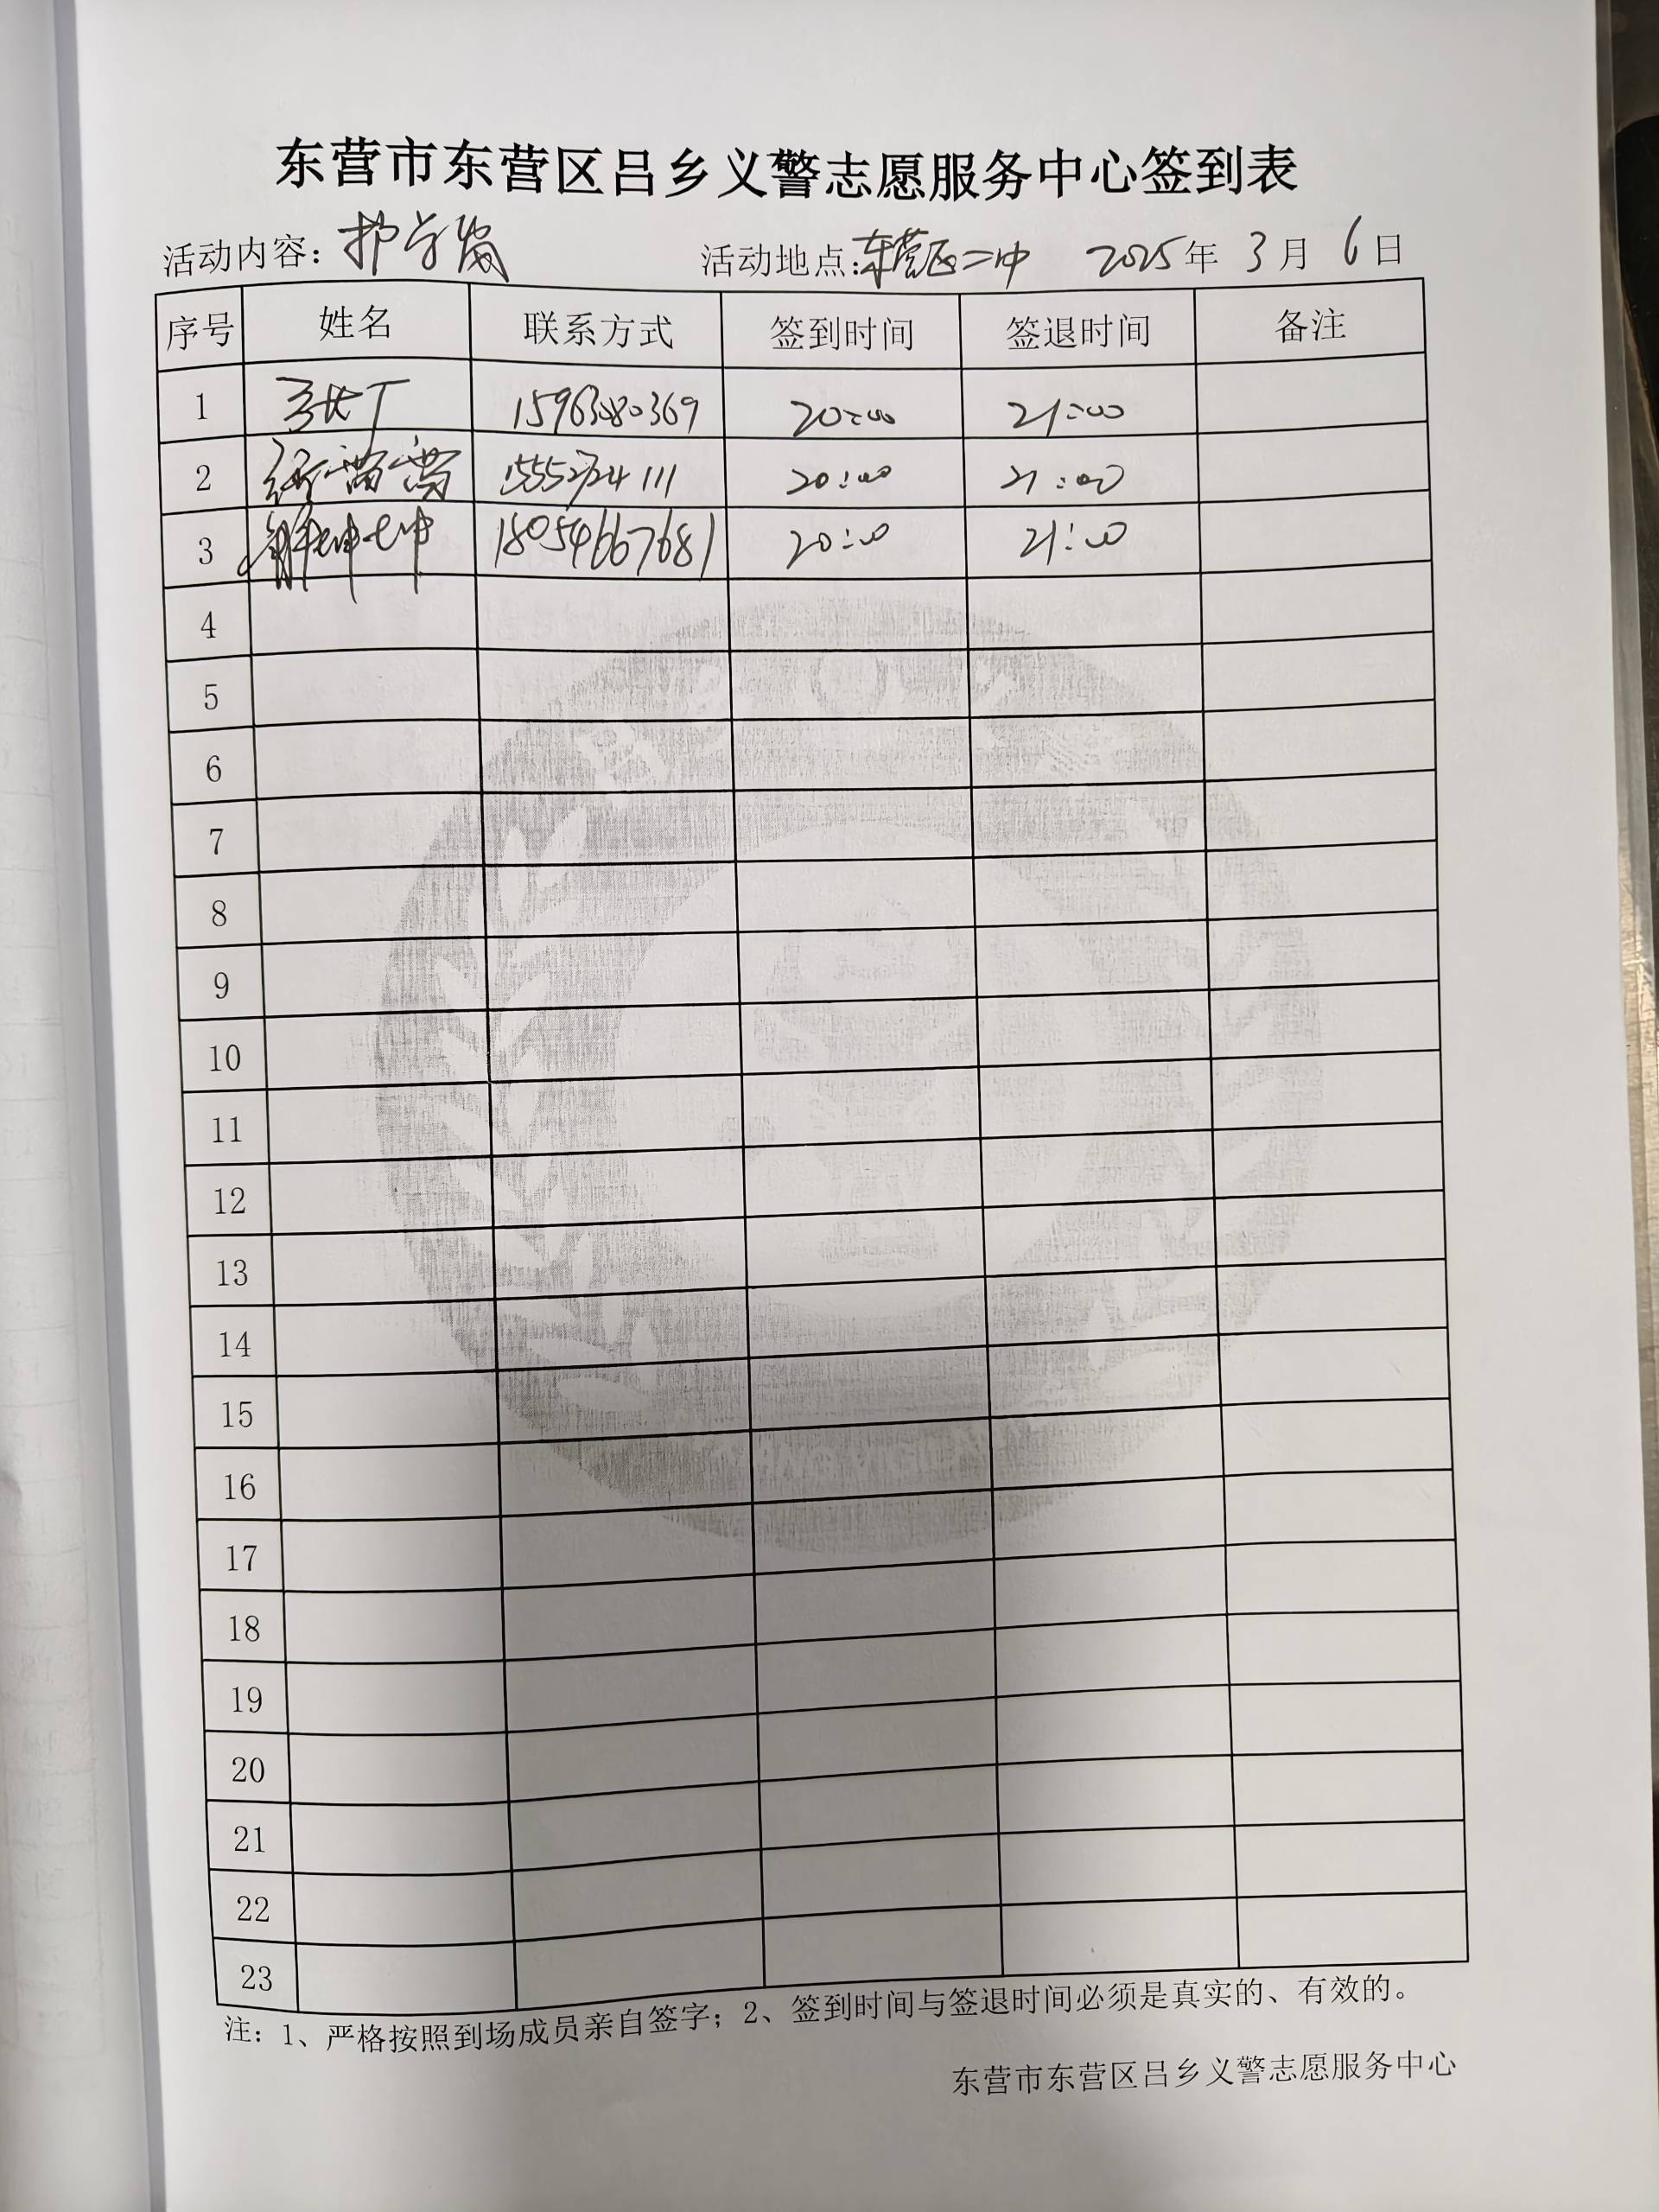 东营市东营区吕乡义警志愿服务中心签到表
活动内容：护学岗 活动地点：东营区二中 2025年3月6日
序号 姓名 联系方式 签到时间 签退时间 备注
1 15963080369 20:00 21:00
2 20:00 21:00
3 解坤坤 18054667681 20:00 21:00
4
5
6
7
8
9
10
11
12
13
14
15
16
17
18
19
20
21
22
23
注：1、严格按照到场成员亲自签字；2、签到时间与签退时间必须是真实的、有效的。
东营市东营区吕乡义警志愿服务中心